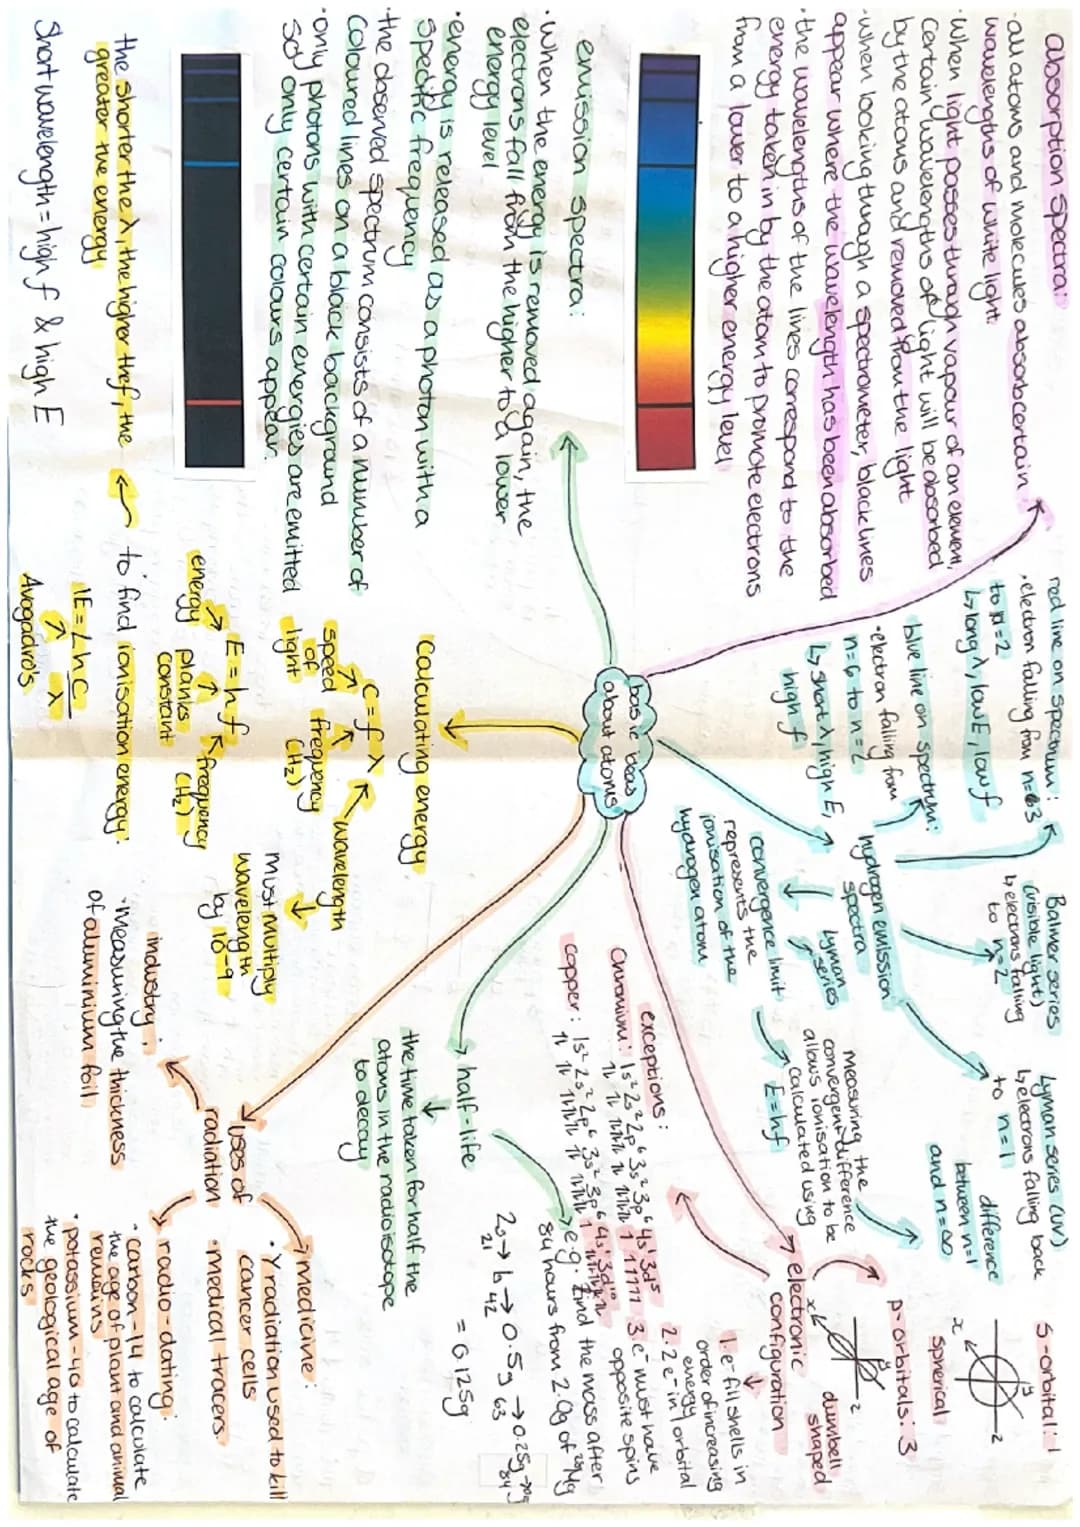 absorption spectra:
• all atoms and molecules absorb certain
wavelengths of white light.
• When light passes through vapour of an element,
certain wavelengths of light will be absorbed
by the atoms and removed from the light
• when looking through a spectrometer, black lines
appear where the wavelength has been absorbed
• the wavelengths of the lines correspond to the
energy taken in by the atom to promote electrons
from a lower to a higher energy level
emission spectra:
• when the energy is removed again, the
electrons fall from the higher to a lower
energy level
• energy is released as a photon with a
specific frequency
• the observed spectrum consists of a number of
coloured lines on a black background
• only photons with certain energies are emitted
so only certain colours appear.
the shorter the λ, the higher the f, the
greater the energy
Short wavelength = high f & high E
basic ideas
about atoms
red line on spectrum:
• electron falling from n=3
to n=2
↳ long λ, low E, low f
blue line on spectrum:
• electron falling from
n=6 to n=2
↳ short λ, high E,
high f
hydrogen emission
spectra
Balmer series
(visible light)
↳ electrons falling
to n=2
Lyman series (UV)
↳ electrons falling back
to n=1
Lyman
series
convergence limit
represents the
ionisation of the
hydrogen atom
measuring the
convergent difference
allows ionisation to be
calculated using
E=hf
difference
between n=1
and n=∞
S-orbital: 1
x
y
z
spherical
p-orbitals: 3
x
y
z
dumbell
shaped
electronic
configuration
1. e⁻ fill shells in
order of increasing
energy
2. 2 e⁻ in 1 orbital
3 e⁻ must have
opposite spins
exceptions:
chromium: 1s² 2s² 2p⁶ 3s² 3p⁶ 4s¹ 3d⁵
⥮ ⥮ ⥮⥮⥮ ⥮ ⥮⥮⥮ 1 11111
copper: 1s² 2s² 2p⁶ 3s² 3p⁶ 4s¹ 3d¹⁰
⥮ ⥮ ⥮⥮⥮ ⥮ ⥮⥮⥮ 1 ⥮⥮⥮⥮⥮
half-life
the time taken for half the
atoms in the radioisotope
to decay
e.g. find the mass after
84 hours from 2.0g of ²⁸Mg
2g → 1g → 0.5g → 0.25g →
21 42 63 84
= 0.125g
Calculating energy
c = f λ
speed
of
light
frequency
(Hz)
wavelength
must multiply
wavelength
by 10⁻⁹
E = h f
energy
planks
constant
frequency
(Hz)
to find ionisation energy:
IE = L h c
λ
Avogadro's
uses of
radiation
industry:
• Measuring the thickness
of aluminium foil
medicine:
• γ radiation used to kill
cancer cells
• medical tracers
radio-dating:
• carbon-14 to calculate
the age of plant and animal
remains
• potassium-40 to calculate
the geological age of
rocks